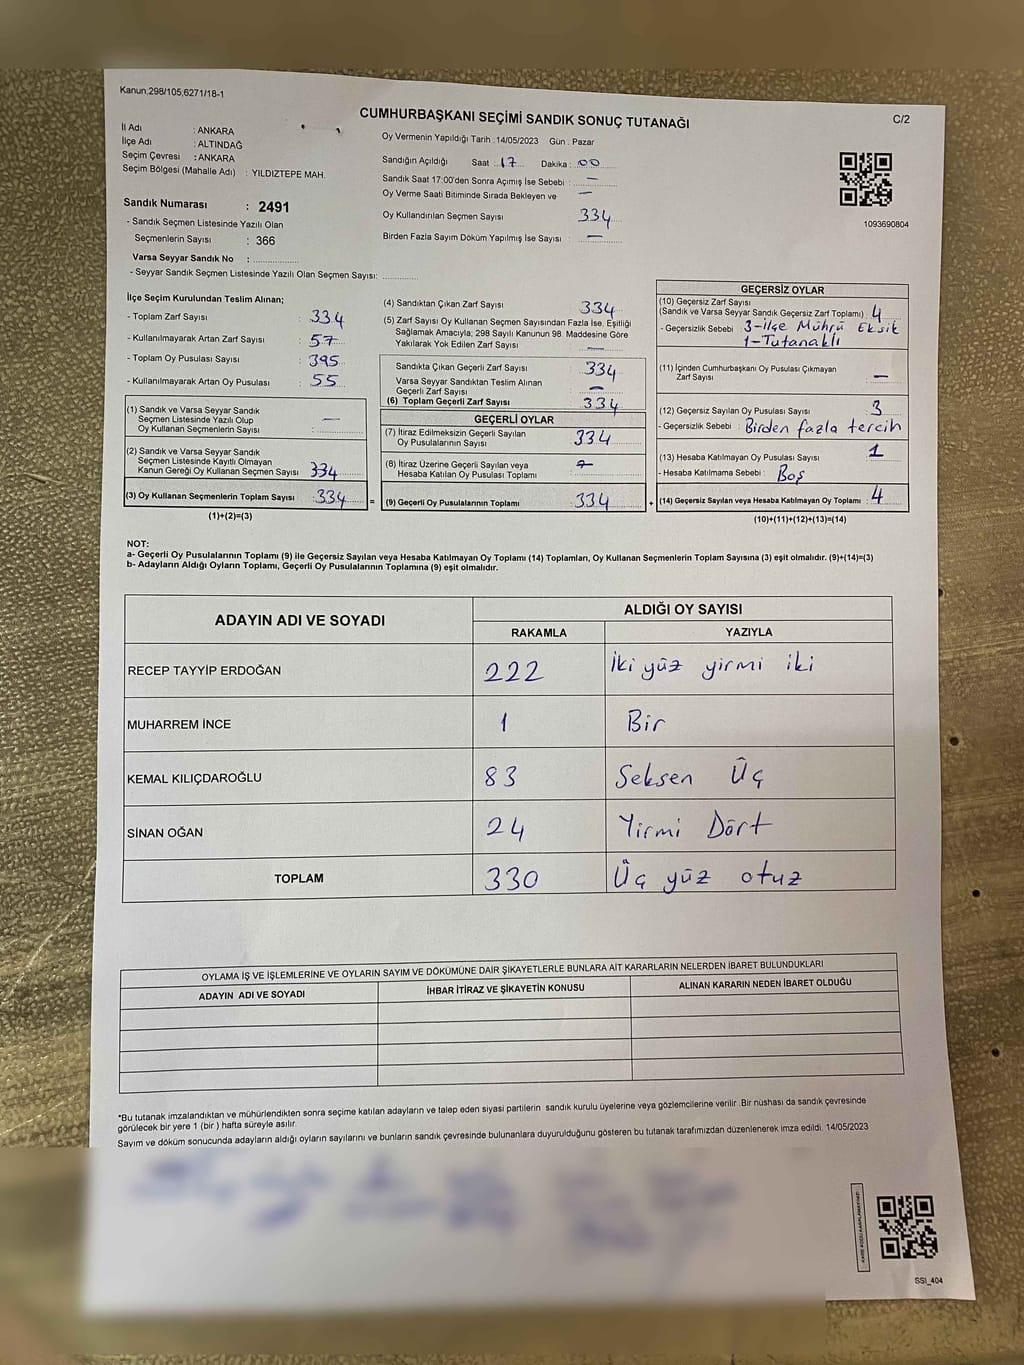 Kanun,298/105,6271/18-1
CUMHURBAŞKANI SEÇİMİ SANDIK SONUÇ TUTANAĞI
C/2
İl Adı : ANKARA
İlçe Adı : ALTINDAĞ
Seçim Çevresi : ANKARA
Seçim Bölgesi (Mahalle Adı) : YILDIZTEPE MAH.
Sandık Numarası : 2491
- Sandık Seçmen Listesinde Yazılı Olan
Seçmenlerin Sayısı : 366
Varsa Seyyar Sandık No :
- Seyyar Sandık Seçmen Listesinde Yazılı Olan Seçmen Sayısı:
Oy Vermenin Yapıldığı Tarih : 14/05/2023 Gün : Pazar
Sandığın Açıldığı Saat : 17 Dakika : 00
Sandık Saat 17:00'den Sonra Açımış İse Sebebi : —
Oy Verme Saati Bitiminde Sırada Bekleyen ve —
Oy Kullandırılan Seçmen Sayısı 334
Birden Fazla Sayım Döküm Yapılmış İse Sayısı : —
1093690804
İlçe Seçim Kurulundan Teslim Alınan;
- Toplam Zarf Sayısı : 334
- Kullanılmayarak Artan Zarf Sayısı : 57
- Toplam Oy Pusulası Sayısı : 395
- Kullanılmayarak Artan Oy Pusulası : 55
(1) Sandık ve Varsa Seyyar Sandık
Seçmen Listesinde Yazılı Olup
Oy Kullanan Seçmenlerin Sayısı : —
(2) Sandık ve Varsa Seyyar Sandık
Seçmen Listesinde Kayıtlı Olmayan
Kanun Gereği Oy Kullanan Seçmen Sayısı : 334
(3) Oy Kullanan Seçmenlerin Toplam Sayısı : 334 =
(1)+(2)=(3)
(4) Sandıktan Çıkan Zarf Sayısı 334
(5) Zarf Sayısı Oy Kullanan Seçmen Sayısından Fazla İse, Eşitliği
Sağlamak Amacıyla; 298 Sayılı Kanunun 98. Maddesine Göre
Yakılarak Yok Edilen Zarf Sayısı —
Sandıkta Çıkan Geçerli Zarf Sayısı 334
Varsa Seyyar Sandıktan Teslim Alınan
Geçerli Zarf Sayısı —
(6) Toplam Geçerli Zarf Sayısı 334
GEÇERLİ OYLAR
(7) İtiraz Edilmeksizin Geçerli Sayılan
Oy Pusulalarının Sayısı 334
(8) İtiraz Üzerine Geçerli Sayılan veya
Hesaba Katılan Oy Pusulası Toplamı
(9) Geçerli Oy Pusulalarının Toplamı 334 +
GEÇERSİZ OYLAR
(10) Geçersiz Zarf Sayısı
(Sandık ve Varsa Seyyar Sandık Geçersiz Zarf Toplamı) : 4
- Geçersizlik Sebebi : 3-İlçe Mührü Eksik
1-Tutanaklı
(11) İçinden Cumhurbaşkanı Oy Pusulası Çıkmayan
Zarf Sayısı —
(12) Geçersiz Sayılan Oy Pusulası Sayısı 3
- Geçersizlik Sebebi : Birden fazla tercih
(13) Hesaba Katılmayan Oy Pusulası Sayısı 1
- Hesaba Katılmama Sebebi : Boş
(14) Geçersiz Sayılan veya Hesaba Katılmayan Oy Toplamı : 4
(10)+(11)+(12)+(13)=(14)
NOT:
a- Geçerli Oy Pusulalarının Toplamı (9) ile Geçersiz Sayılan veya Hesaba Katılmayan Oy Toplamı (14) Toplamları, Oy Kullanan Seçmenlerin Toplam Sayısına (3) eşit olmalıdır. (9)+(14)=(3)
b- Adayların Aldığı Oyların Toplamı, Geçerli Oy Pusulalarının Toplamına (9) eşit olmalıdır.
ADAYIN ADI VE SOYADI
ALDIĞI OY SAYISI
RAKAMLA YAZIYLA
RECEP TAYYİP ERDOĞAN 222 İki yüz yirmi iki
MUHARREM İNCE 1 Bir
KEMAL KILIÇDAROĞLU 83 Seksen Üç
SİNAN OĞAN 24 Yirmi Dört
TOPLAM 330 Üç yüz otuz
OYLAMA İŞ VE İŞLEMLERİNE VE OYLARIN SAYIM VE DÖKÜMÜNE DAİR ŞİKAYETLERLE BUNLARA AİT KARARLARIN NELERDEN İBARET BULUNDUKLARI
ADAYIN ADI VE SOYADI İHBAR İTİRAZ VE ŞİKAYETİN KONUSU ALINAN KARARIN NEDEN İBARET OLDUĞU
*Bu tutanak imzalandıktan ve mühürlendikten sonra seçime katılan adayların ve talep eden siyasi partilerin sandık kurulu üyelerine veya gözlemcilerine verilir. Bir nüshası da sandık çevresinde
görülecek bir yere 1 (bir ) hafta süreyle asılır.
Sayım ve döküm sonucunda adayların aldığı oyların sayılarını ve bunların sandık çevresinde bulunanlara duyurulduğunu gösteren bu tutanak tarafımızdan düzenlenerek imza edildi. 14/05/2023
SSI_404